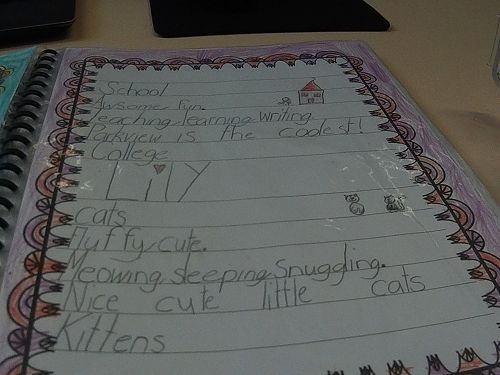 School
Awsome, fun.
Teaching, learning, writing
Parkview is the coolest!
College
LilY
cats
fluffy, cute.
Meowing, sleeping, snuggling.
Nice cute little cats
Kittens